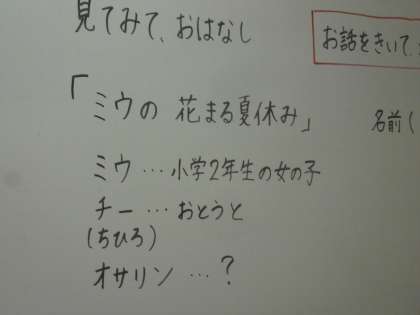 見てみて、おはなし
お話をきいて、
「ミウの 花まる夏休み」
名前(
ミウ…小学2年生の女の子
チー…おとうと
(ちひろ)
オサリン…?